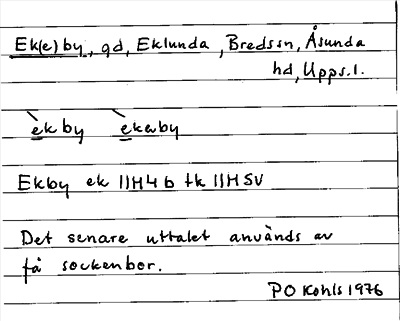 Ek(e)by, gd, Eklunda, Bredssn, Åsunda
hd, Upps.l.
ekby ekeby
Ekby ek 11H4b tk 11HSV
Det senare uttalet används av
få sockenbor.
PO Kohls 1976